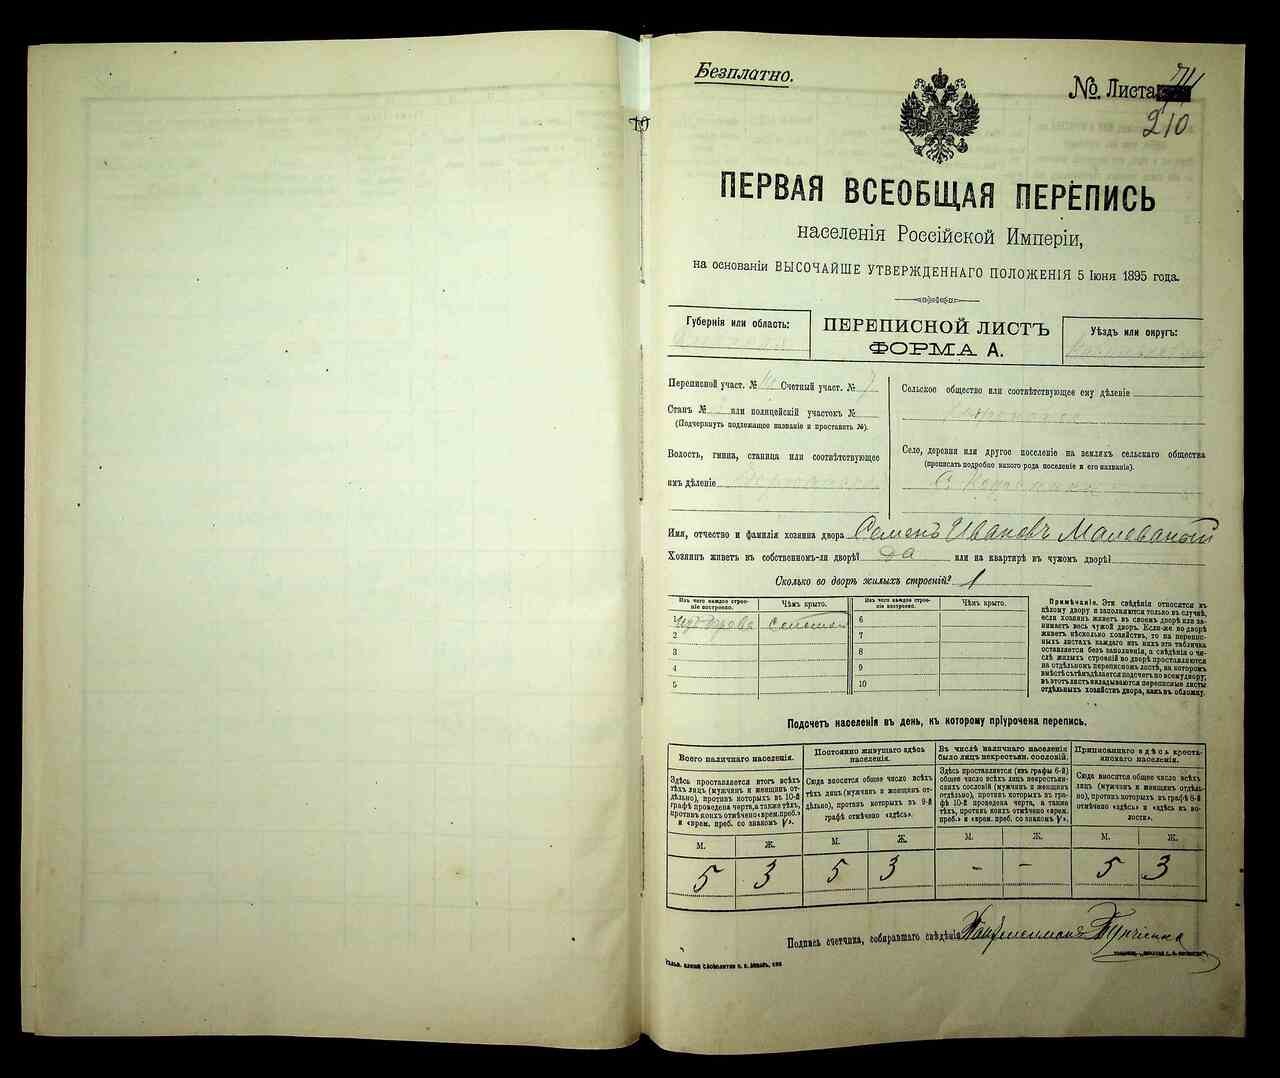 Безплатно.
№ Листа 74
210
ПЕРВАЯ ВСЕОБЩАЯ ПЕРЕПИСЬ
населенія Россійской Имперіи,
на основаніи ВЫСОЧАЙШЕ УТВЕРЖДЕННАГО ПОЛОЖЕНІЯ 5 Іюня 1895 года.
Губернія или область:
ПЕРЕПИСНОЙ ЛИСТЪ
ФОРМА А.
Уѣздъ или округъ:
Переписной участ. № Счетный участ. № 7
Станъ № или полицейскій участокъ №
(Подчеркнуть подлежащее названіе и проставить №).
Волость, гмина, станица или соотвѣтствующее
имъ дѣленіе
Сельское общество или соотвѣтствующее ему дѣленіе
Село, деревня или другое поселеніе на земляхъ сельскаго общества
(прописать подробно какого рода поселеніе и его названіе).
С.
Имя, отчество и фамилія хозяина двора Семенъ Ивановъ Малеваный
Хозяинъ живетъ въ собственномъ-ли дворѣ? да или на квартирѣ въ чужомъ дворѣ?
Сколько во дворѣ жилыхъ строеній? 1
Изъ чего каждое строе-
ніе построено.
Чѣмъ крыто.
Изъ чего каждое строе-
ніе построено.
Чѣмъ крыто.
1 изъ дрова
6
2
7
3
8
4
9
5
10
Примѣчаніе. Эти свѣдѣнія относятся къ
цѣлому двору и заполняются только въ случаѣ,
если хозяинъ живетъ въ своемъ дворѣ или за-
нимаетъ весь чужой дворъ. Если-же во дворѣ
живетъ нѣсколько хозяйствъ, то на перепис-
ныхъ листахъ каждаго изъ нихъ эта табличка
оставляется безъ заполненія, а свѣдѣнія о чи-
слѣ жилыхъ строеній во дворѣ проставляются
на отдѣльномъ переписномъ листѣ, на которомъ
вмѣстѣ съ тѣмъ дѣлается подсчетъ по всему двору;
въ этотъ листъ вкладываются переписные листы
отдѣльныхъ хозяйствъ двора, какъ въ обложку.
Подсчетъ населенія въ день, къ которому пріурочена перепись.
Всего наличнаго населенія.
Здѣсь проставляется итогъ всѣхъ
тѣхъ лицъ (мужчинъ и женщинъ от-
дѣльно), противъ которыхъ въ 10-й
графѣ проведена черта, а также тѣхъ,
противъ коихъ отмѣчено «врем. преб.»
и «врем. преб. со знакомъ V».
Постоянно живущаго здѣсь
населенія.
Сюда вносится общее число всѣхъ
тѣхъ лицъ (мужчинъ и женщинъ от-
дѣльно), противъ которыхъ въ 9-й
графѣ отмѣчено «здѣсь».
Въ числѣ наличнаго населенія
было лицъ некрестьян. сословій.
Здѣсь проставляется (изъ графы 6-й)
общее число всѣхъ лицъ некрестьян-
скихъ сословій (мужчинъ и женщинъ
отдѣльно), противъ которыхъ въ гра-
фѣ 10-й проведена черта, а также
тѣхъ, противъ коихъ отмѣчено «врем.
преб.» и «врем. преб. со знакомъ V».
Приписаннаго здѣсь кресть-
янскаго населенія.
Сюда вносится общее число всѣхъ
лицъ (мужчинъ и женщинъ отдѣль-
но), противъ которыхъ въ графѣ 8-й
отмѣчено «здѣсь» и «здѣсь въ во-
лости».
М. Ж. М. Ж. М. Ж. М. Ж.
5 3 5 3 – – 5 3
Подпись счетчика, собиравшаго свѣдѣнія